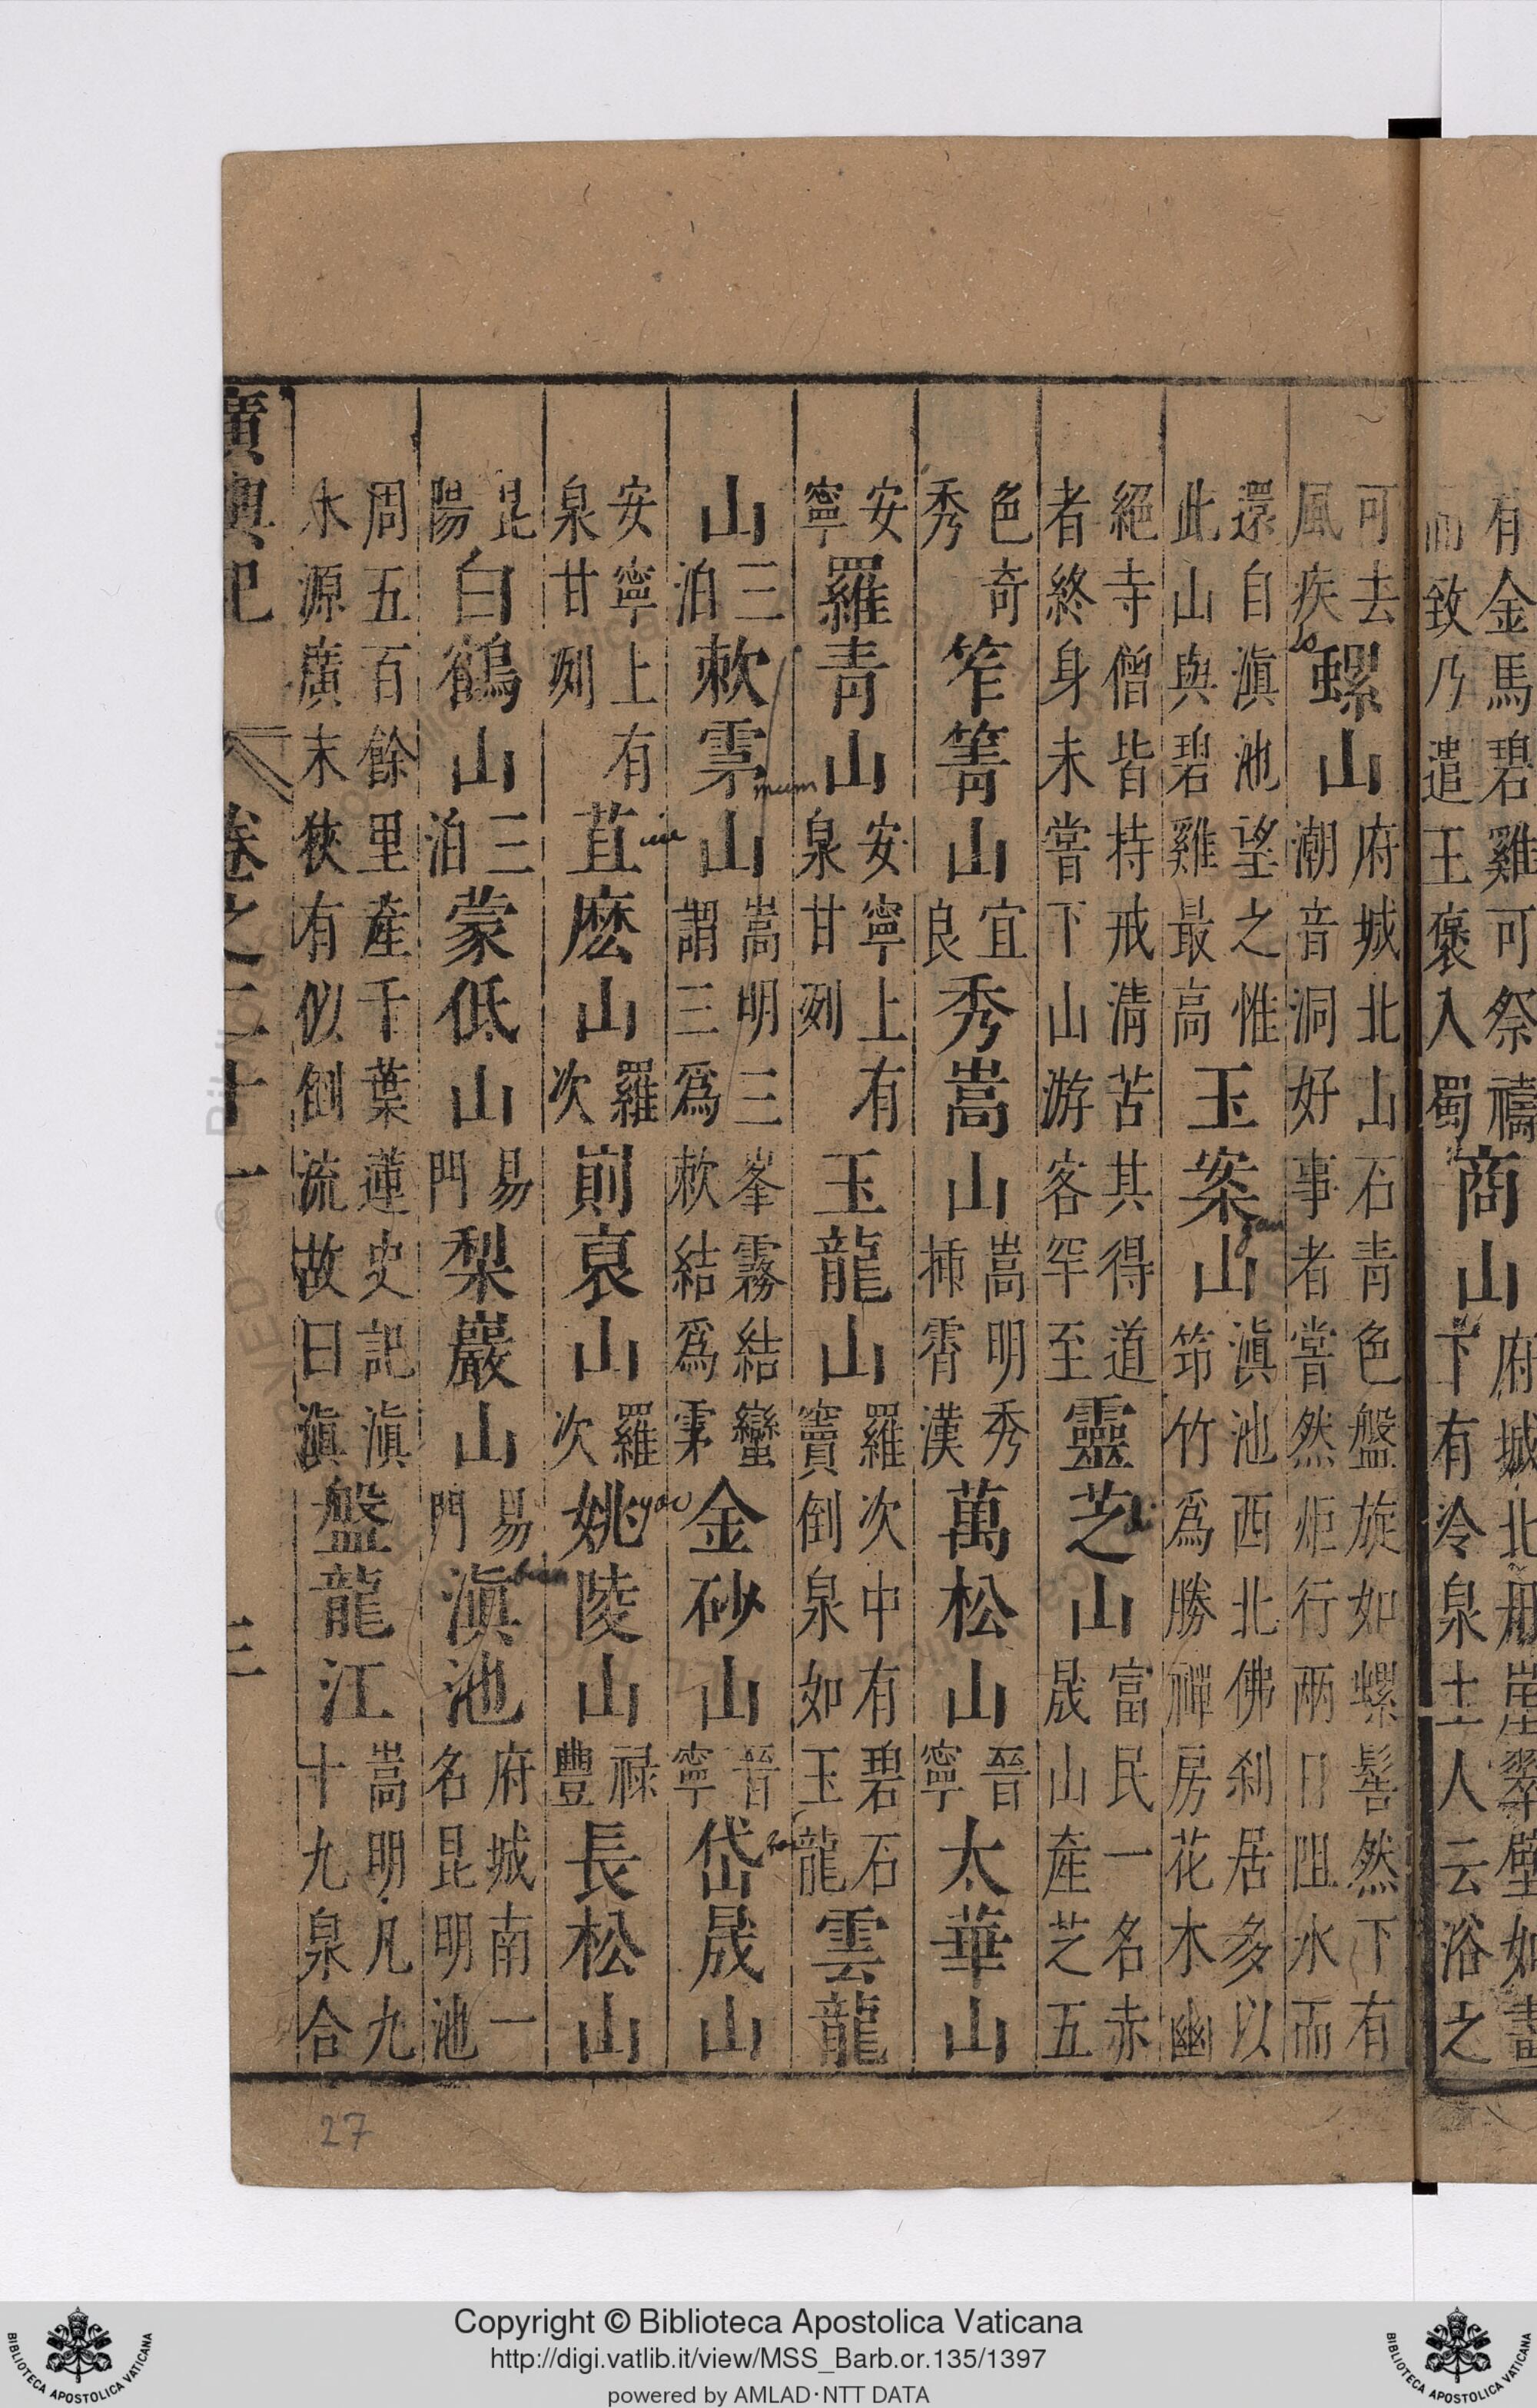 有金馬碧雞可祭禱而致乃遣王褒入蜀商山府城北丹崖翠壁如畫下有冷泉土人云浴之
可去風疾螺山府城北山石青色盤旋如螺髻然下有潮音洞好事者嘗然炬行兩日阻水而
還自滇池望之惟此山與碧雞最高玉案山滇池西北佛刹居多以筇竹爲勝禪房花木幽
絕寺僧皆持戒清苦其得道者終身未嘗下山游客罕至靈芝山富民一名赤晟山產芝五
色奇秀笮箐山宜良秀嵩山嵩明秀插霄漢萬松山晉寧太華山
安寧羅青山安寧上有泉甘冽玉龍山羅次中有碧石竇倒泉如玉龍雲龍
山三泊欶雺山嵩明三峯霧結蠻謂三爲欶結爲雺金砂山晉寧岱晟山
安寧上有泉甘冽苴麽山羅次崱哀山羅次姚陵山祿豐長松山
昆陽白鶴山三泊蒙低山易門梨巖山易門滇池府城南一名昆明池
周五百餘里產千葉蓮史記滇水源廣末狹有似倒流故曰滇盤龍江嵩明凡九十九泉合
廣輿記 卷之二十一 三
lo
gan
mum
yao
27
Copyright © Biblioteca Apostolica Vaticana
http://digi.vatlib.it/view/MSS_Barb.or.135/1397
powered by AMLAD·NTT DATA
BIBLIOTECA APOSTOLICA VATICANA
BIBLIOTECA APOSTOLICA VATICANA